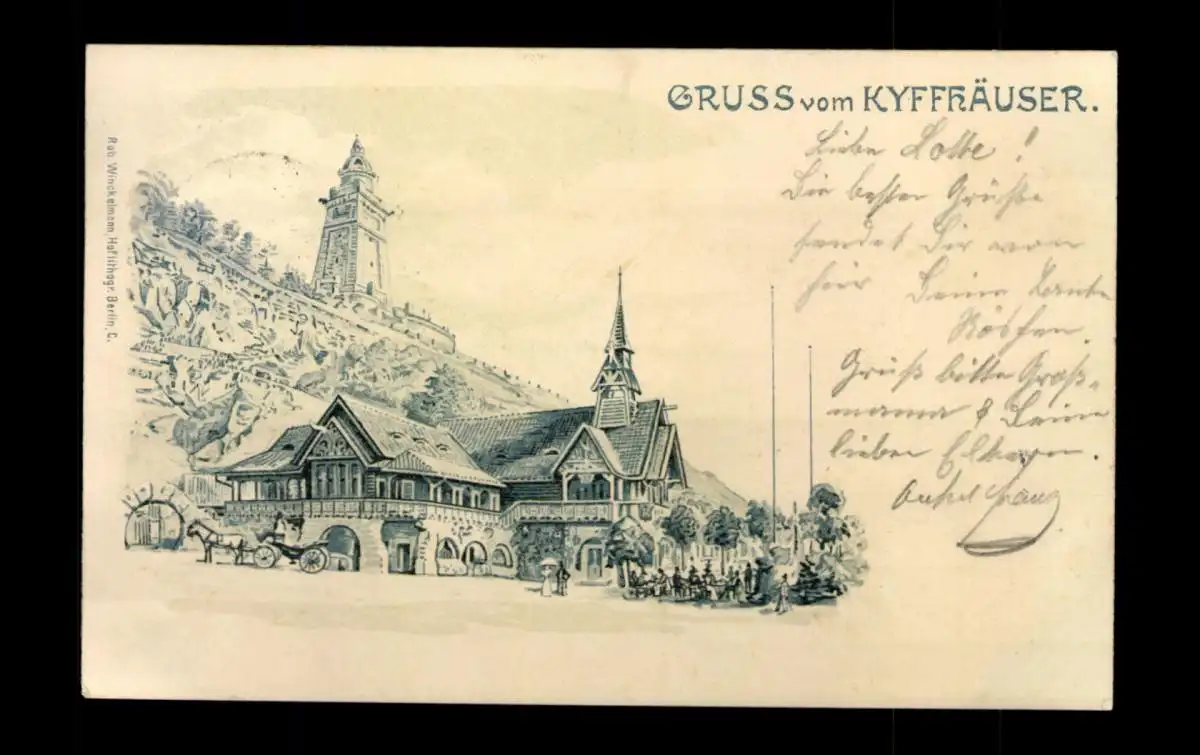 GRUSS vom KYFFHÄUSER.
Liebe Lotte!
Die besten Grüße
sendet Dir von
hier Deine Tante
Röschen.
Grüß bitte Groß-
mama & Deine
lieben Eltern.
Onkel Franz
Rob. Winckelmann, Hoflithogr. Berlin, C.